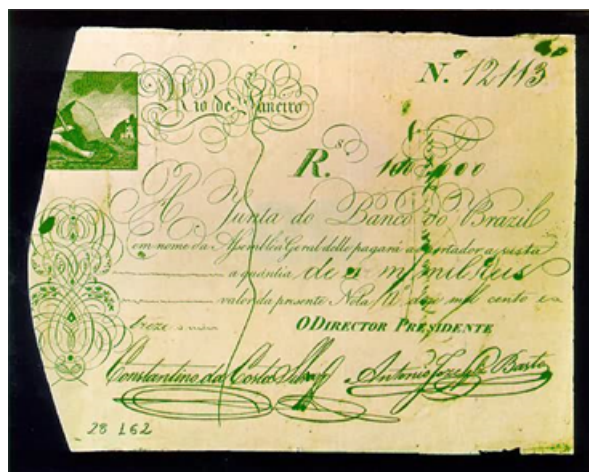 N.º 12113
Rio de Janeiro
R.s
A Junta do Banco do Brazil
em nome da Assemblea Geral delle pagará ao portador a vista
a quantia de mil Reis
valor da presente Nota N. doze mil cento e
treze
O DIRECTOR PRESIDENTE
Constantino da Costa Antonio Joze
28 162